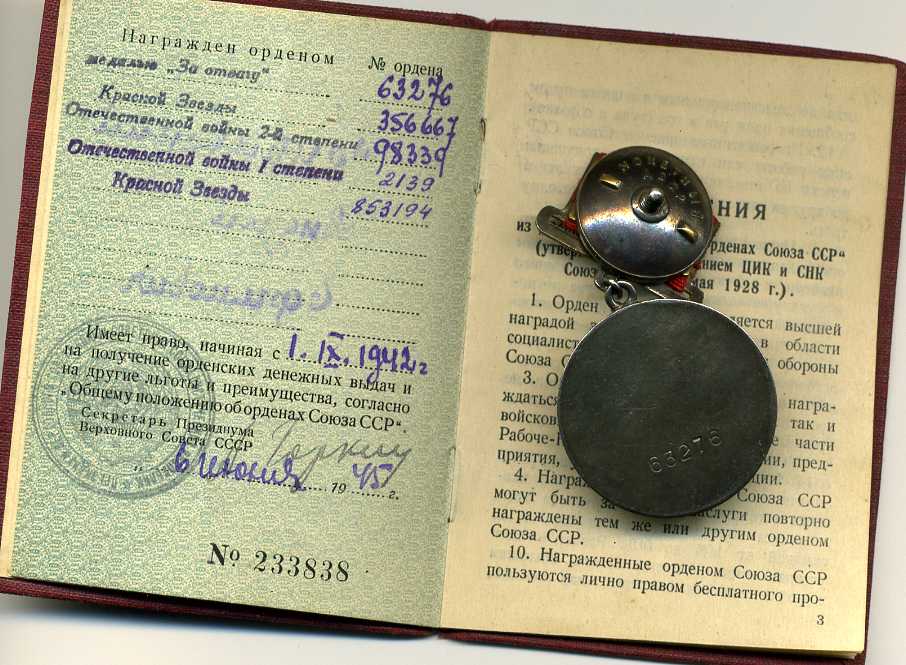 Награжден орденом № ордена
медалью „За отвагу" 63276
Красной Звезды 356667
Отечественной войны 2-й степени 98339
Отечественной войны I степени 2139
Красной Звезды 853194
Имеет право, начиная с 1. IX. 1942 г
на получение орденских денежных выдач и
на другие льготы и преимущества, согласно
„Общему положению об орденах Союза ССР".
Секретарь Президиума
Верховного Совета СССР
Горкин
6 июня 1945 г.
№ 233838
НИЯ
из орденах Союза ССР"
(утвер нием ЦИК и СНК
Союз мая 1928 г.).
1. Орден яется высшей
наградой в области
социалист обороны
Союза С
3. О награ-
ждаться так и
войсков е части
Рабоче-К ми, пред-
приятия, ции.
4. Награ Союза ССР
могут быть за заслуги повторно
награждены тем же или другим орденом
Союза ССР.
10. Награжденные орденом Союза ССР
пользуются лично правом бесплатного про-
3
63276